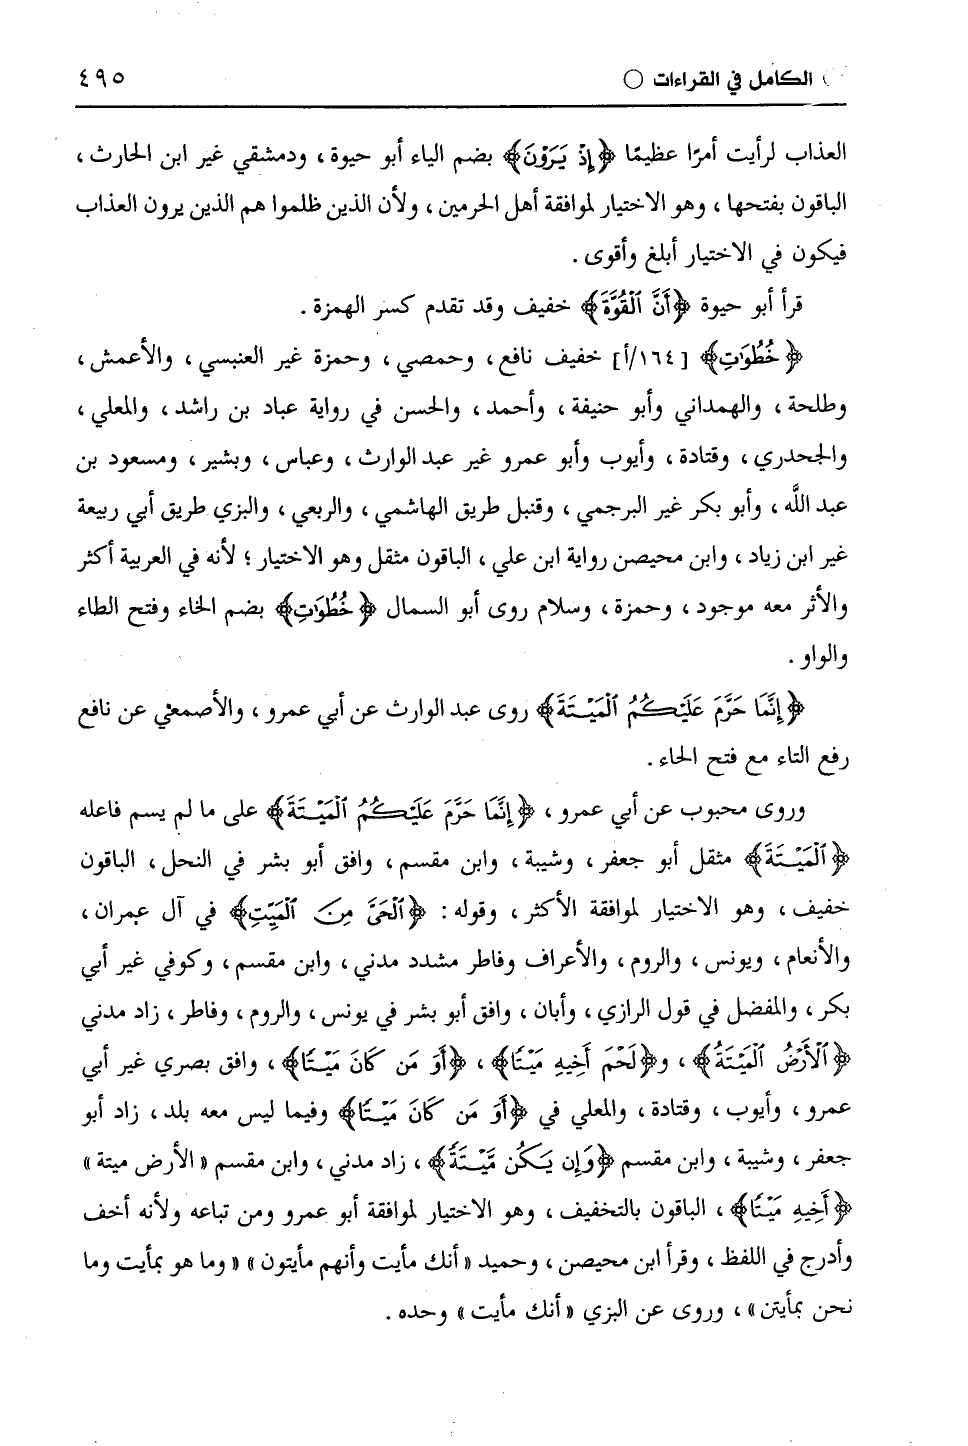 الكامل في القراءات ○ ٤٩٥
العذاب لرأيت أمرًا عظيمًا ﴿إِذْ يَرَوْنَ﴾ بضم الياء أبو حيوة، ودمشقي غير ابن الحارث،
الباقون بفتحها، وهو الاختيار لموافقة أهل الحرمين، ولأن الذين ظلموا هم الذين يرون العذاب
فيكون في الاختيار أبلغ وأقوى.
قرأ أبو حيوة ﴿أَنَّ ٱلْقُوَّةَ﴾ خفيف وقد تقدم كسر الهمزة.
﴿خُطُوَٰتِ﴾ [١٦٤/أ] خفيف نافع، وحمصي، وحمزة غير العنبسي، والأعمش،
وطلحة، والهمداني وأبو حنيفة، وأحمد، والحسن في رواية عباد بن راشد، والمعلي،
والجحدري، وقتادة، وأيوب وأبو عمرو غير عبد الوارث، وعباس، وبشير، ومسعود بن
عبد اللَّه، وأبو بكر غير البرجمي، وقنبل طريق الهاشمي، والربعي، والبزي طريق أبي ربيعة
غير ابن زياد، وابن محيصن رواية ابن علي، الباقون مثقل وهو الاختيار؛ لأنه في العربية أكثر
والأثر معه موجود، وحمزة، وسلام روى أبو السمال ﴿خُطُوَٰتِ﴾ بضم الخاء وفتح الطاء
والواو.
﴿إِنَّمَا حَرَّمَ عَلَيْكُمُ ٱلْمَيْتَةَ﴾ روى عبد الوارث عن أبي عمرو، والأصمعي عن نافع
رفع التاء مع فتح الحاء.
وروى محبوب عن أبي عمرو، ﴿إِنَّمَا حَرَّمَ عَلَيْكُمُ ٱلْمَيْتَةَ﴾ على ما لم يسم فاعله
﴿ٱلْمَيْتَةَ﴾ مثقل أبو جعفر، وشيبة، وابن مقسم، وافق أبو بشر في النحل، الباقون
خفيف، وهو الاختيار لموافقة الأكثر، وقوله: ﴿ٱلْحَىَّ مِنَ ٱلْمَيِّتِ﴾ في آل عمران،
والأنعام، ويونس، والروم، والأعراف وفاطر مشدد مدني، وابن مقسم، وكوفي غير أبي
بكر، والمفضل في قول الرازي، وأبان، وافق أبو بشر في يونس، والروم، وفاطر، زاد مدني
﴿ٱلْأَرْضُ ٱلْمَيْتَةُ﴾، و﴿لَحْمَ أَخِيهِ مَيْتًا﴾، ﴿أَوَ مَن كَانَ مَيْتًا﴾، وافق بصري غير أبي
عمرو، وأيوب، وقتادة، والمعلي في ﴿أَوَ مَن كَانَ مَيْتًا﴾ وفيما ليس معه بلد، زاد أبو
جعفر، وشيبة، وابن مقسم ﴿وَإِن يَكُن مَّيْتَةً﴾، زاد مدني، وابن مقسم «الأرض ميتة»
﴿أَخِيهِ مَيْتًا﴾، الباقون بالتخفيف، وهو الاختيار لموافقة أبو عمرو ومن تباعه ولأنه أخف
وأدرج في اللفظ، وقرأ ابن محيصن، وحميد «أنك مأيت وأنهم مأيتون» «وما هو بمأيت وما
نحن بمأيتن»، وروى عن البزي «أنك مأيت» وحده.